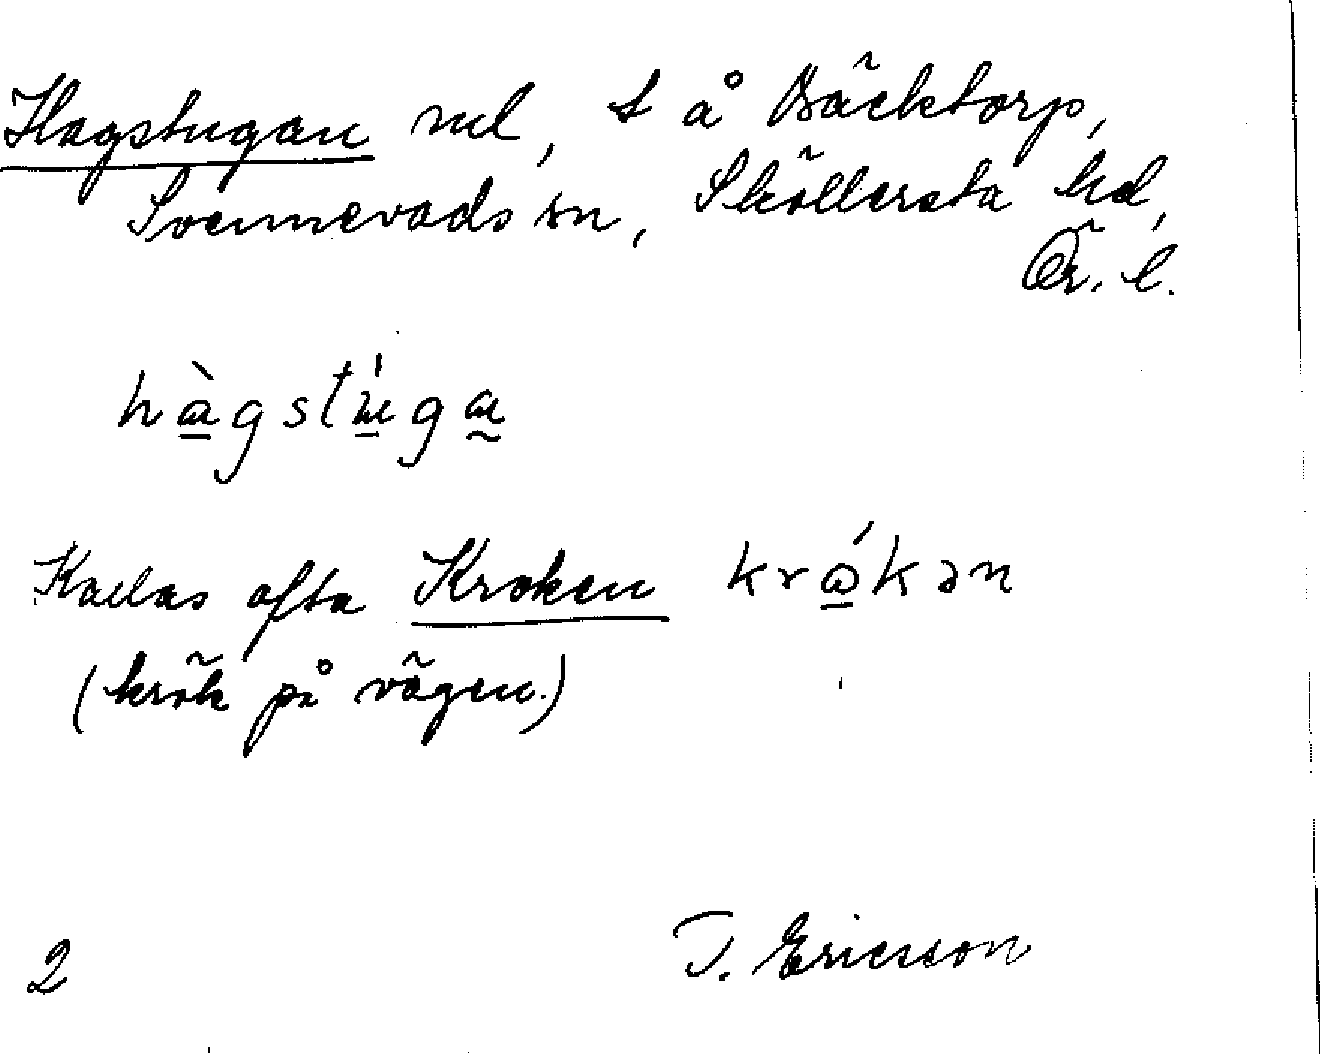 Hagstugan vul, t å Bäcktorp,
Svennevads sn, Sköllersta hd,
Ör. l.
hàgstúga
Kallas ofta Kroken krókən
(krök på vägen.)
2 T. Ericsson